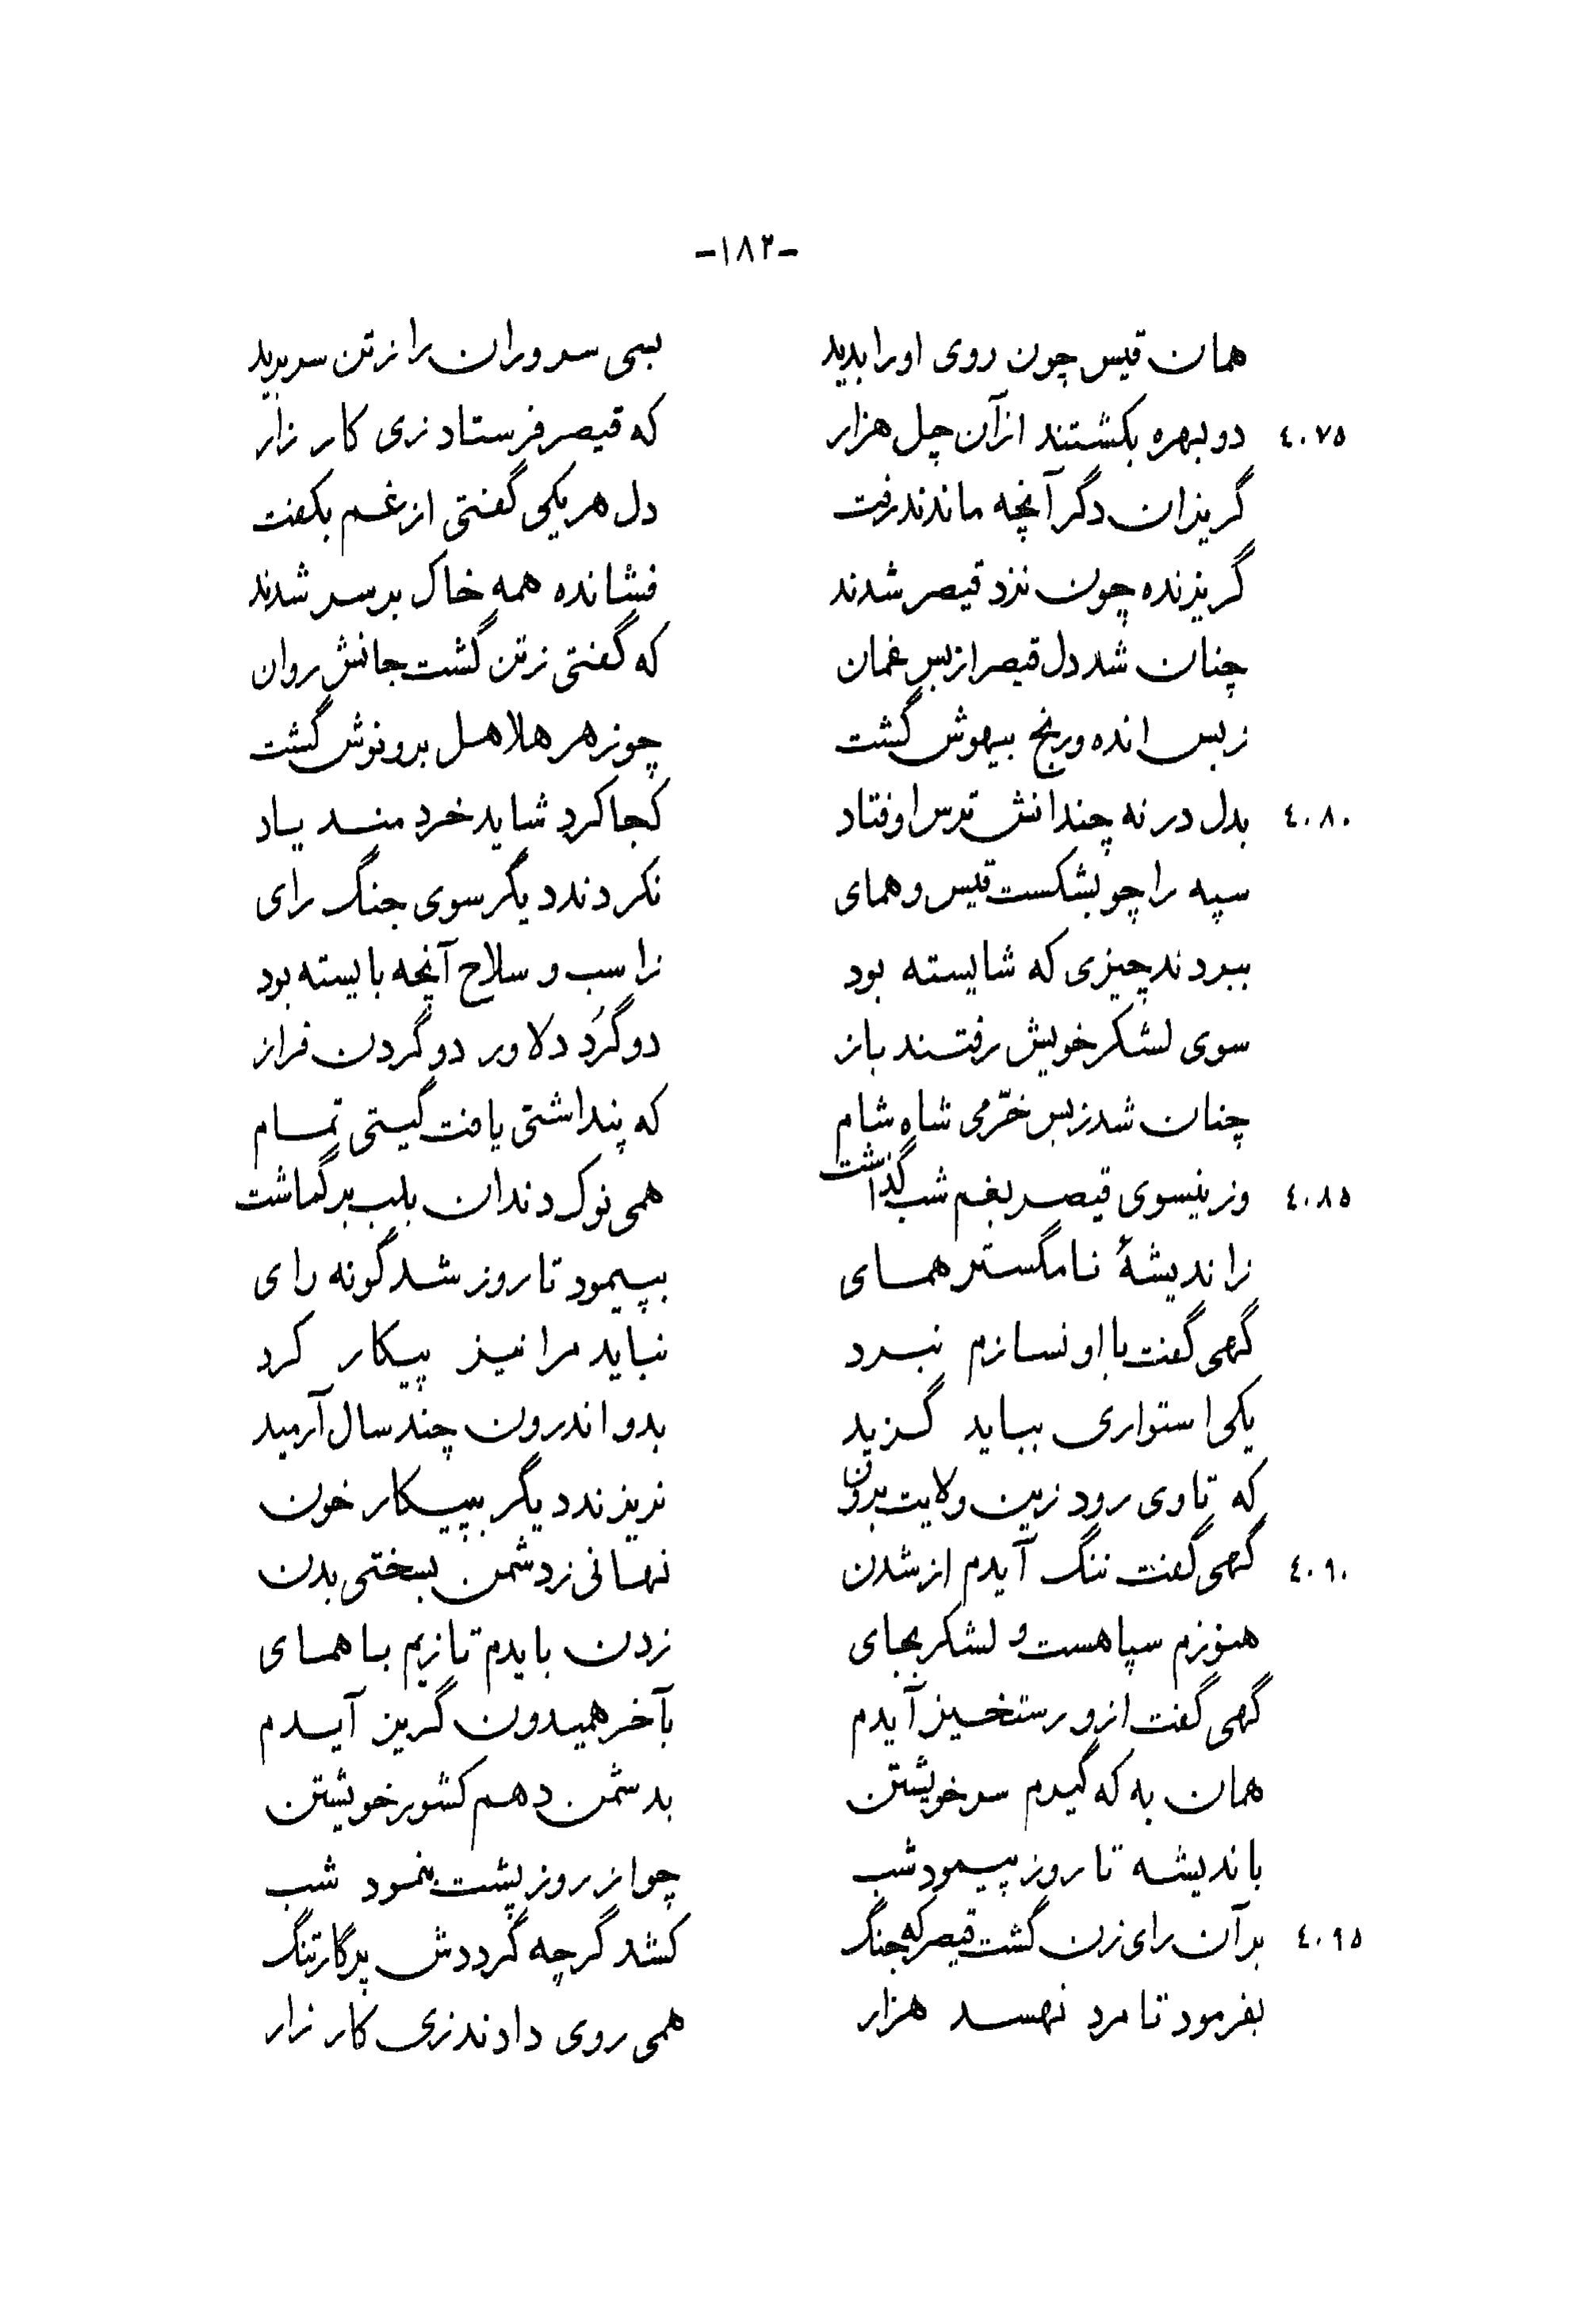 -۱۸۲-
همان قیس چون روی او را بدید بسی سروران را ز تن سر برید
٤٠٧٥ دو بهره بکشتند از آن چل هزار که قیصر فرستاد زی کار زار
گریزان دگر آنچه ماندند رفت دل هر یکی گفتی از غم بکفت
گریزنده چون نزد قیصر شدند فشانده همه خاک بر سر شدند
چنان شد دل قیصر از بس غمان که گفتی ز تن گشت جانش روان
ز بس انده و رنج بیهوش گشت چو زهر هلاهل برو نوش گشت
٤٠٨٠ بدل در نه چندانش ترس اوفتاد کجا کرد شاید خردمند یاد
سپه را چو بشکست قیس و همای نکردند دیگر سوی جنگ رای
ببردند چیزی که شایسته بود ز اسب و سلاح آنچه بایسته بود
سوی لشکر خویش رفتند باز دو گُرد دلاور دو گردن فراز
چنان شد ز بس خرّمی شاه شام که پنداشتی یافت گیتی تمام
٤٠٨٥ وزینسوی قیصر بغم شب گذاشت همی نوک دندان بلب بر گماشت
ز اندیشهٔ نامگستر همای بپیمود تا روز شد گونه رای
گهی گفت با او نسازم نبرد نباید مرا نیز پیکار کرد
یکی استواری بباید گزید بدو اندرون چند سال آرمید
که تا وی رود زین ولایت برون نریزند دیگر بپیکار خون
٤٠٩٠ گهی گفت ننگ آیدم از شدن نهانی ز دشمن بسختی بدن
هنوزم سپاهست و لشکر بجای زدن بایدم تا زیم با همای
گهی گفت ازو رستخیز آیدم بآخر همیدون گریز آیدم
همان به که گیرم سر خویشتن بدشمن دهم کشور خویشتن
باندیشه تا روز پیمود شب چو از روز پشت بنمود شب
٤٠٩٥ بر آن رای زن گشت قیصر که جنگ کشد گرچه گرددش پرگار تنگ
بفرمود تا مرد نهسد هزار همی روی دادند زی کار زار